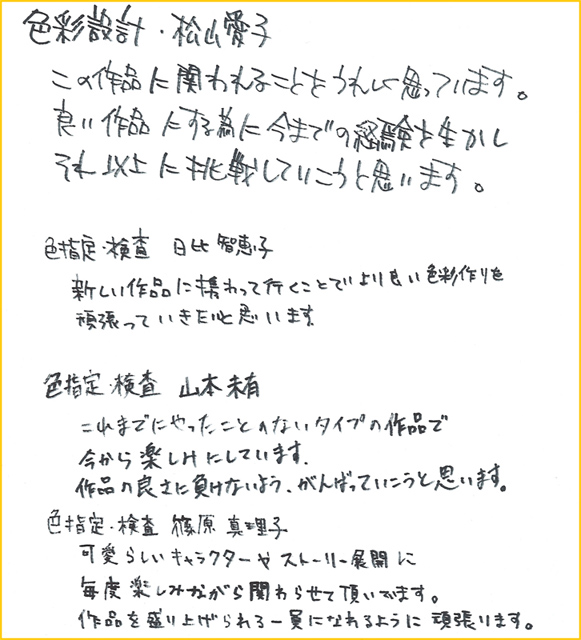 色彩設計・松山愛子
この作品に関われることをうれしく思っています。
良い作品にする為に今までの経験を生かし
それ以上に挑戦していこうと思います。
色指定・検査 日比智恵子
新しい作品に携わって行くことでより良い色彩作りを
頑張っていきたいと思います
色指定・検査 山本未有
これまでにやったことのないタイプの作品で
今から楽しみにしています.
作品の良さに負けないよう、がんばっていこうと思います。
色指定・検査 篠原真理子
可愛らしいキャラクターやストーリー展開に
毎度楽しみながら関わらせて頂いてます。
作品を盛り上げられる一員になれるように頑張ります。